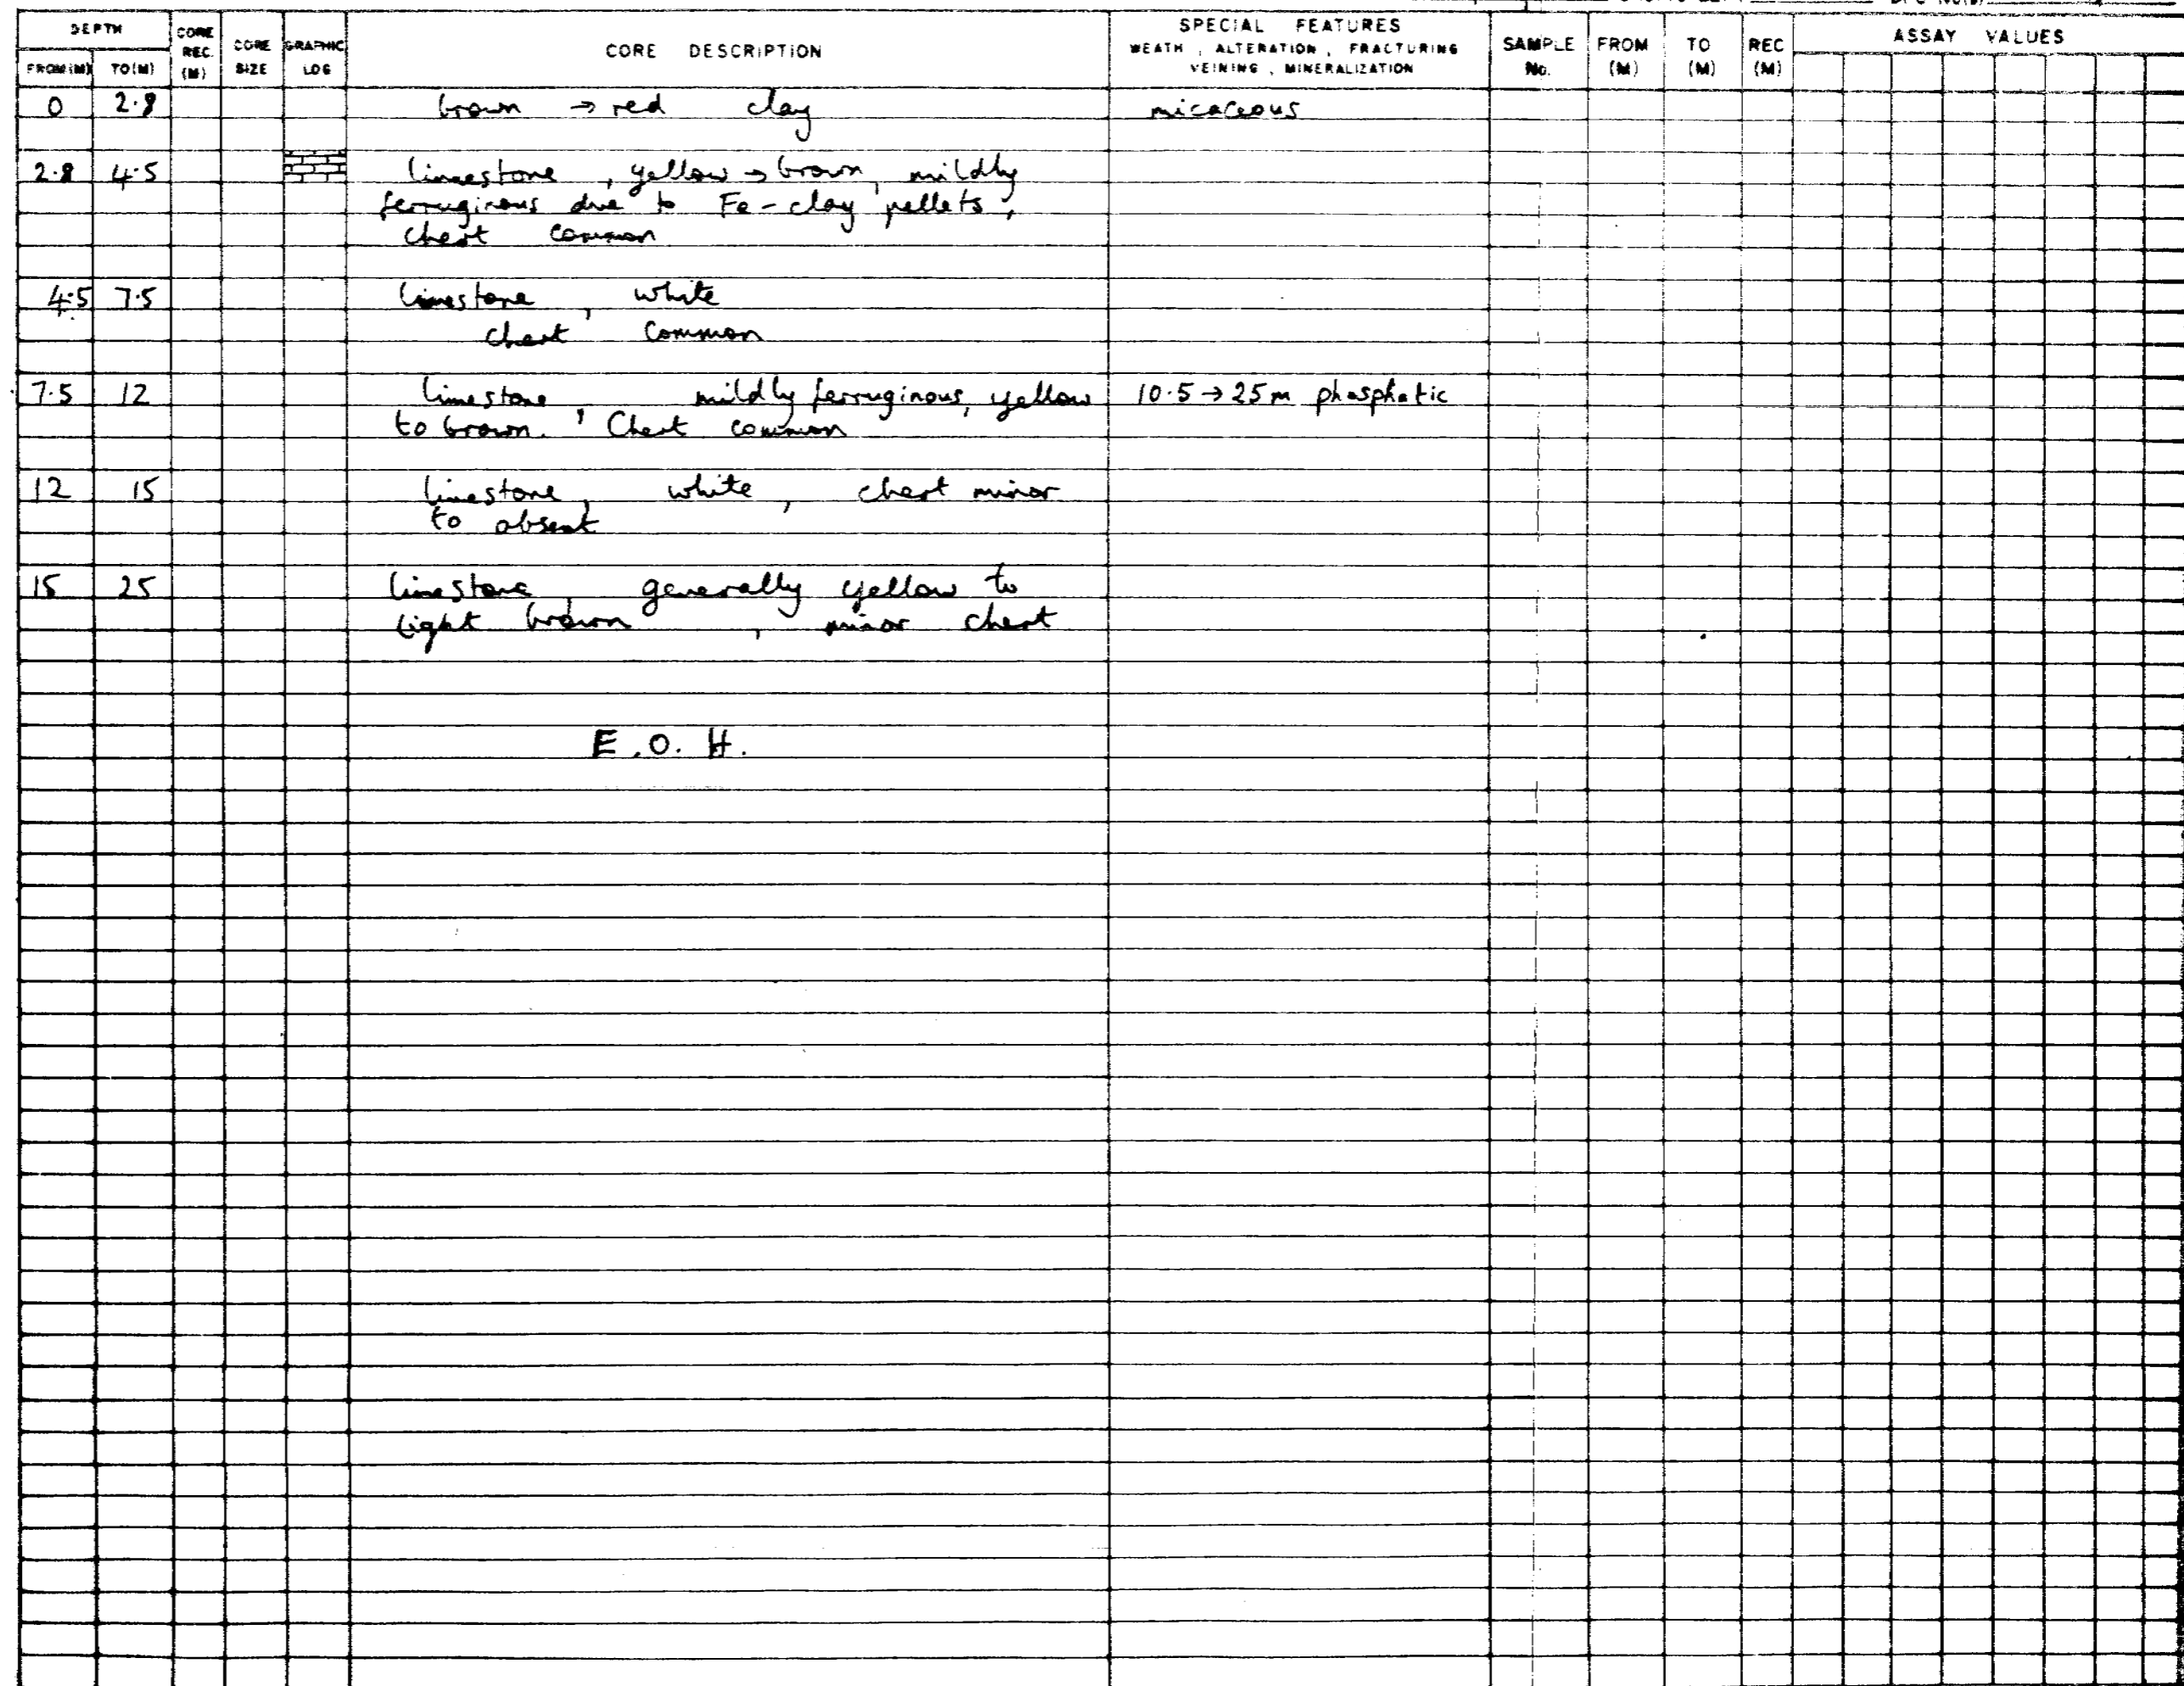 DEPTH
FROM (M) TO (M)
CORE REC. (M)
CORE SIZE
GRAPHIC LOG
CORE DESCRIPTION
SPECIAL FEATURES
WEATH, ALTERATION, FRACTURING
VEINING, MINERALIZATION
SAMPLE No.
FROM (M)
TO (M)
REC (M)
ASSAY VALUES
0 2.8 brown → red clay micaceous
2.8 4.5 limestone, yellow → brown, mildly
ferruginous due to Fe-clay pellets,
chert common
4.5 7.5 limestone, white
chert common
7.5 12 limestone, mildly ferruginous, yellow 10.5 → 25m phosphatic
to brown. Chert common
12 15 limestone, white, chert minor
to absent
15 25 limestone, generally yellow to
light brown, minor chert
E.O.H.